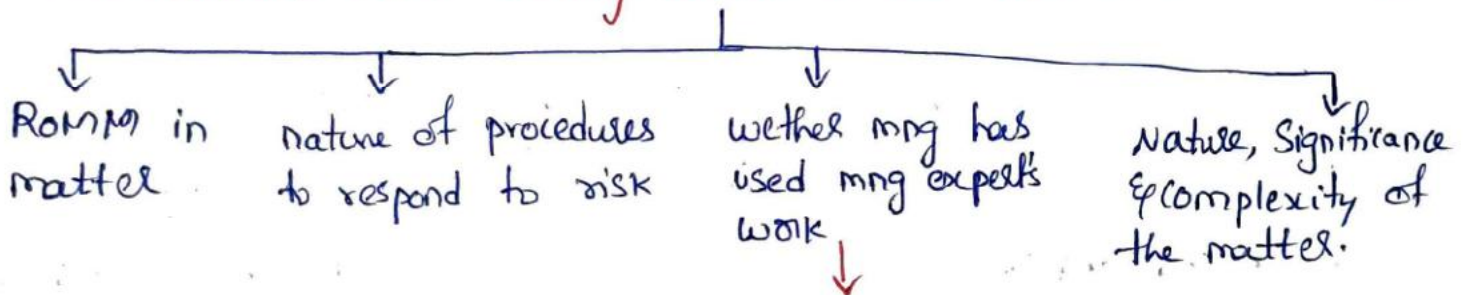 ROMM in
matter
nature of procedures
to respond to risk
wether mng has
used mng expert's
work
Nature, Significance
& complexity of
the matter.